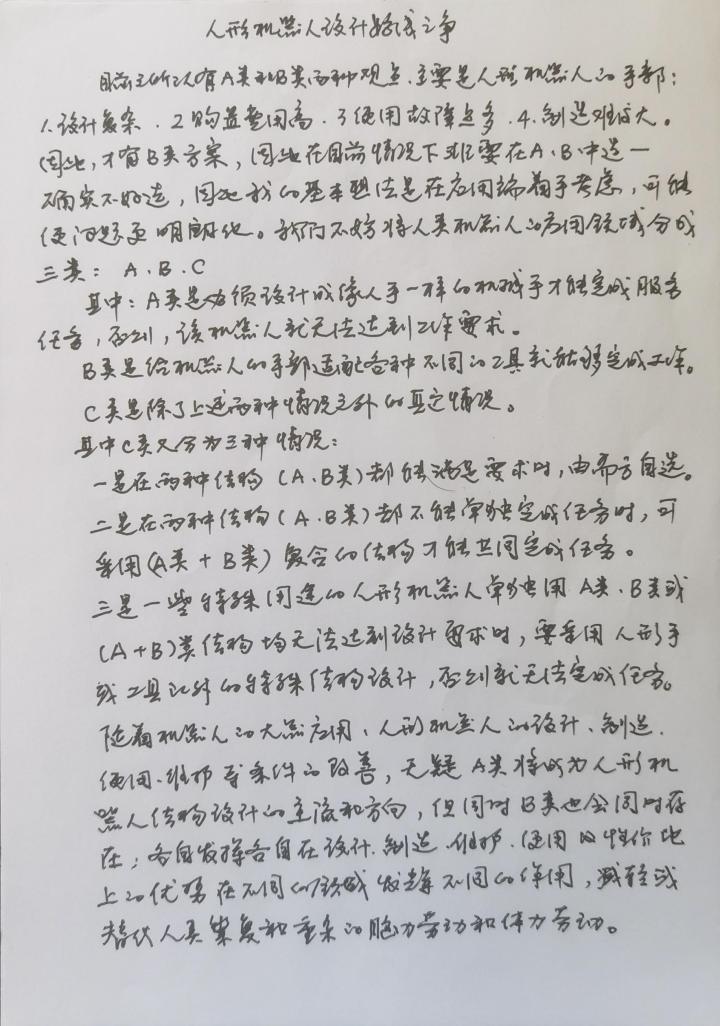 人形机器人设计路线之争
目前之所以有A类和B类两种观点.主要是人形机器人的手部：
1.设计复杂.2购置费用高.3使用故障点多.4.制造难度大。
因此，才有B类方案，因此在目前情况下非要在A.B中选一
确实不好选，因此我的基本想法是在应用端着手考虑，可能
使问题更明朗化。我们不妨将人类机器人的应用领域分成
三类：A.B.C
其中：A类是必须设计成像人手一样的机械手才能完成服务
任务，否则，该机器人就无法达到工作要求。
B类是给机器人的手部适配各种不同的工具就能够完成工作。
C类是除了上述两种情况之外的其它情况。
其中C类又分为三种情况：
一是在两种结构（A.B类）都能满足要求时，由需方自选。
二是在两种结构（A.B类）都不能单独完成任务时，可
采用（A类+B类）复合的结构才能共同完成任务。
三是一些特殊用途的人形机器人单独用A类.B类或
（A+B）类结构均无法达到设计要求时，要采用人形手
或工具以外的特殊结构设计，否则就无法完成任务。
随着机器人的大量应用、人形机器人的设计、制造.
使用.维护等条件的改善，无疑A类将成为人形机
器人结构设计的主流和方向，但同时B类也会同时存
在；各自发挥各自在设计.制造.维护.使用及性价比
上的优势在不同的领域发挥不同的作用，减轻或
替代人类繁复和重杂的脑力劳动和体力劳动。